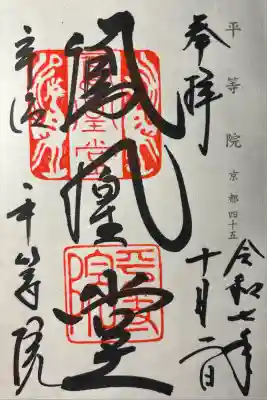 平等院 京都四十五
奉拝
令和七年
十月二日
鳳凰堂
平等院
宇治 平等院